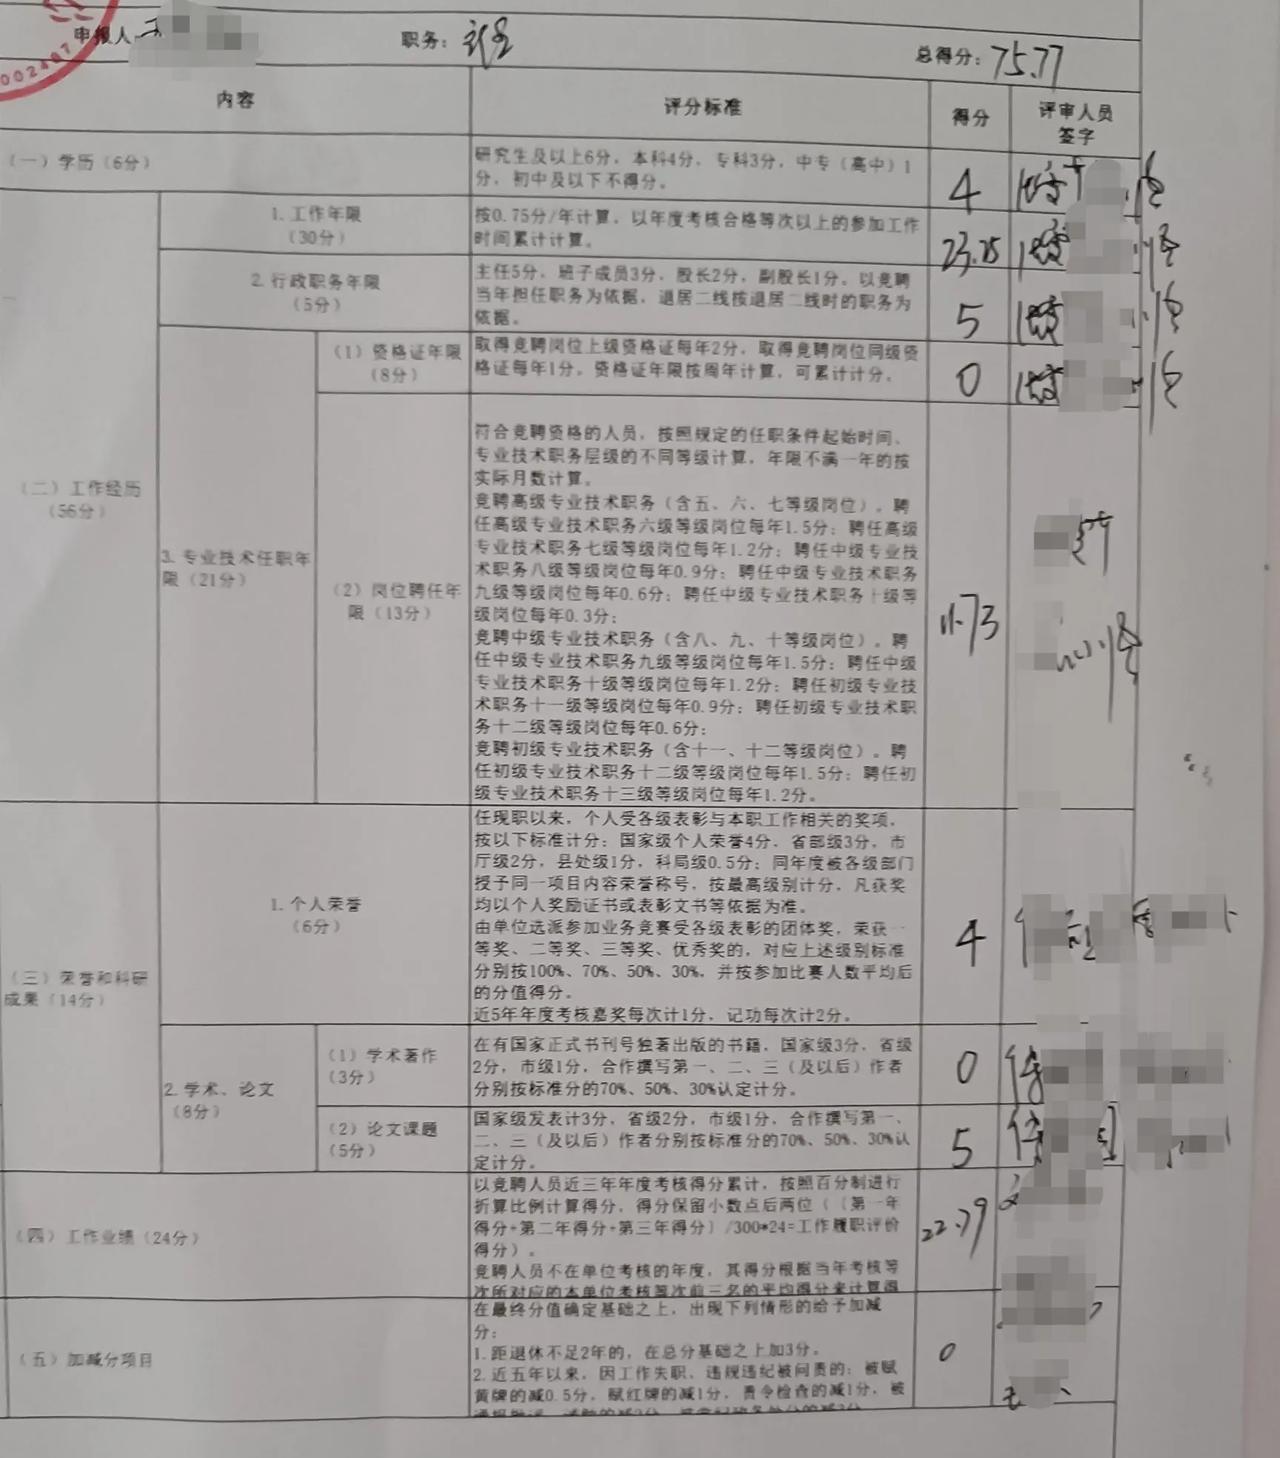 002407
申报人
职务：
总得分：75.77
内容
评分标准
得分
评审人员
签字
（一）学历（6分）
研究生及以上6分，本科4分，专科3分，中专（高中）1
分，初中及以下不得分。
4
（二）工作经历
（56分）
1.工作年限
（30分）
按0.75分/年计算，以年度考核合格等次以上的参加工作
时间累计计算。
23.25
2.行政职务年限
（5分）
主任5分，班子成员3分，股长2分，副股长1分。以竞聘
当年担任职务为依据，退居二线按退居二线时的职务为
依据。
5
3.专业技术任职年
限（21分）
（1）资格证年限
（8分）
取得竞聘岗位上级资格证每年2分，取得竞聘岗位同级资
格证每年1分，资格证年限按周年计算，可累计计分。
0
（2）岗位聘任年
限（13分）
符合竞聘资格的人员，按照规定的任职条件起始时间、
专业技术职务层级的不同等级计算，年限不满一年的按
实际月数计算。
竞聘高级专业技术职务（含五、六、七等级岗位）。聘
任高级专业技术职务六级等级岗位每年1.5分；聘任高级
专业技术职务七级等级岗位每年1.2分；聘任中级专业技
术职务八级等级岗位每年0.9分；聘任中级专业技术职务
九级等级岗位每年0.6分；聘任中级专业技术职务十级等
级岗位每年0.3分；
竞聘中级专业技术职务（含八、九、十等级岗位）。聘
任中级专业技术职务九级等级岗位每年1.5分；聘任中级
专业技术职务十级等级岗位每年1.2分；聘任初级专业技
术职务十一级等级岗位每年0.9分；聘任初级专业技术职
务十二级等级岗位每年0.6分；
竞聘初级专业技术职务（含十一、十二等级岗位）。聘
任初级专业技术职务十二级等级岗位每年1.5分；聘任初
级专业技术职务十三级等级岗位每年1.2分。
11.73
（三）荣誉和科研
成果（14分）
1.个人荣誉
（6分）
任现职以来，个人受各级表彰与本职工作相关的奖项，
按以下标准计分：国家级个人荣誉4分，省部级3分，市
厅级2分，县处级1分，科局级0.5分；同年度被各级部门
授予同一项目内容荣誉称号，按最高级别计分，凡获奖
均以个人奖励证书或表彰文书等依据为准。
由单位选派参加业务竞赛受各级表彰的团体奖，荣获一
等奖、二等奖、三等奖、优秀奖的，对应上述级别标准
分别按100%、70%、50%、30%，并按参加比赛人数平均后
的分值得分。
近5年年度考核嘉奖每次计1分，记功每次计2分。
4
2.学术、论文
（8分）
（1）学术著作
（3分）
在有国家正式书刊号独著出版的书籍，国家级3分，省级
2分，市级1分，合作撰写第一、二、三（及以后）作者
分别按标准分的70%、50%、30%认定计分。
0
（2）论文课题
（5分）
国家级发表计3分，省级2分，市级1分，合作撰写第一、
二、三（及以后）作者分别按标准分的70%、50%、30%认
定计分。
5
（四）工作业绩（24分）
以竞聘人员近三年年度考核得分累计，按照百分制进行
折算比例计算得分，得分保留小数点后两位（（第一年
得分+第二年得分+第三年得分）/300*24=工作履职评价
得分）。
竞聘人员不在单位考核的年度，其得分根据当年考核等
次所对应的本单位考核等次前三名的平均得分来计算得
22.79
（五）加减分项目
在最终分值确定基础之上，出现下列情形的给予加减
分：
1.距退休不足2年的，在总分基础之上加3分。
2.近五年以来，因工作失职、违规违纪被问责的：被赋
黄牌的减0.5分，赋红牌的减1分，责令检查的减1分，被
0